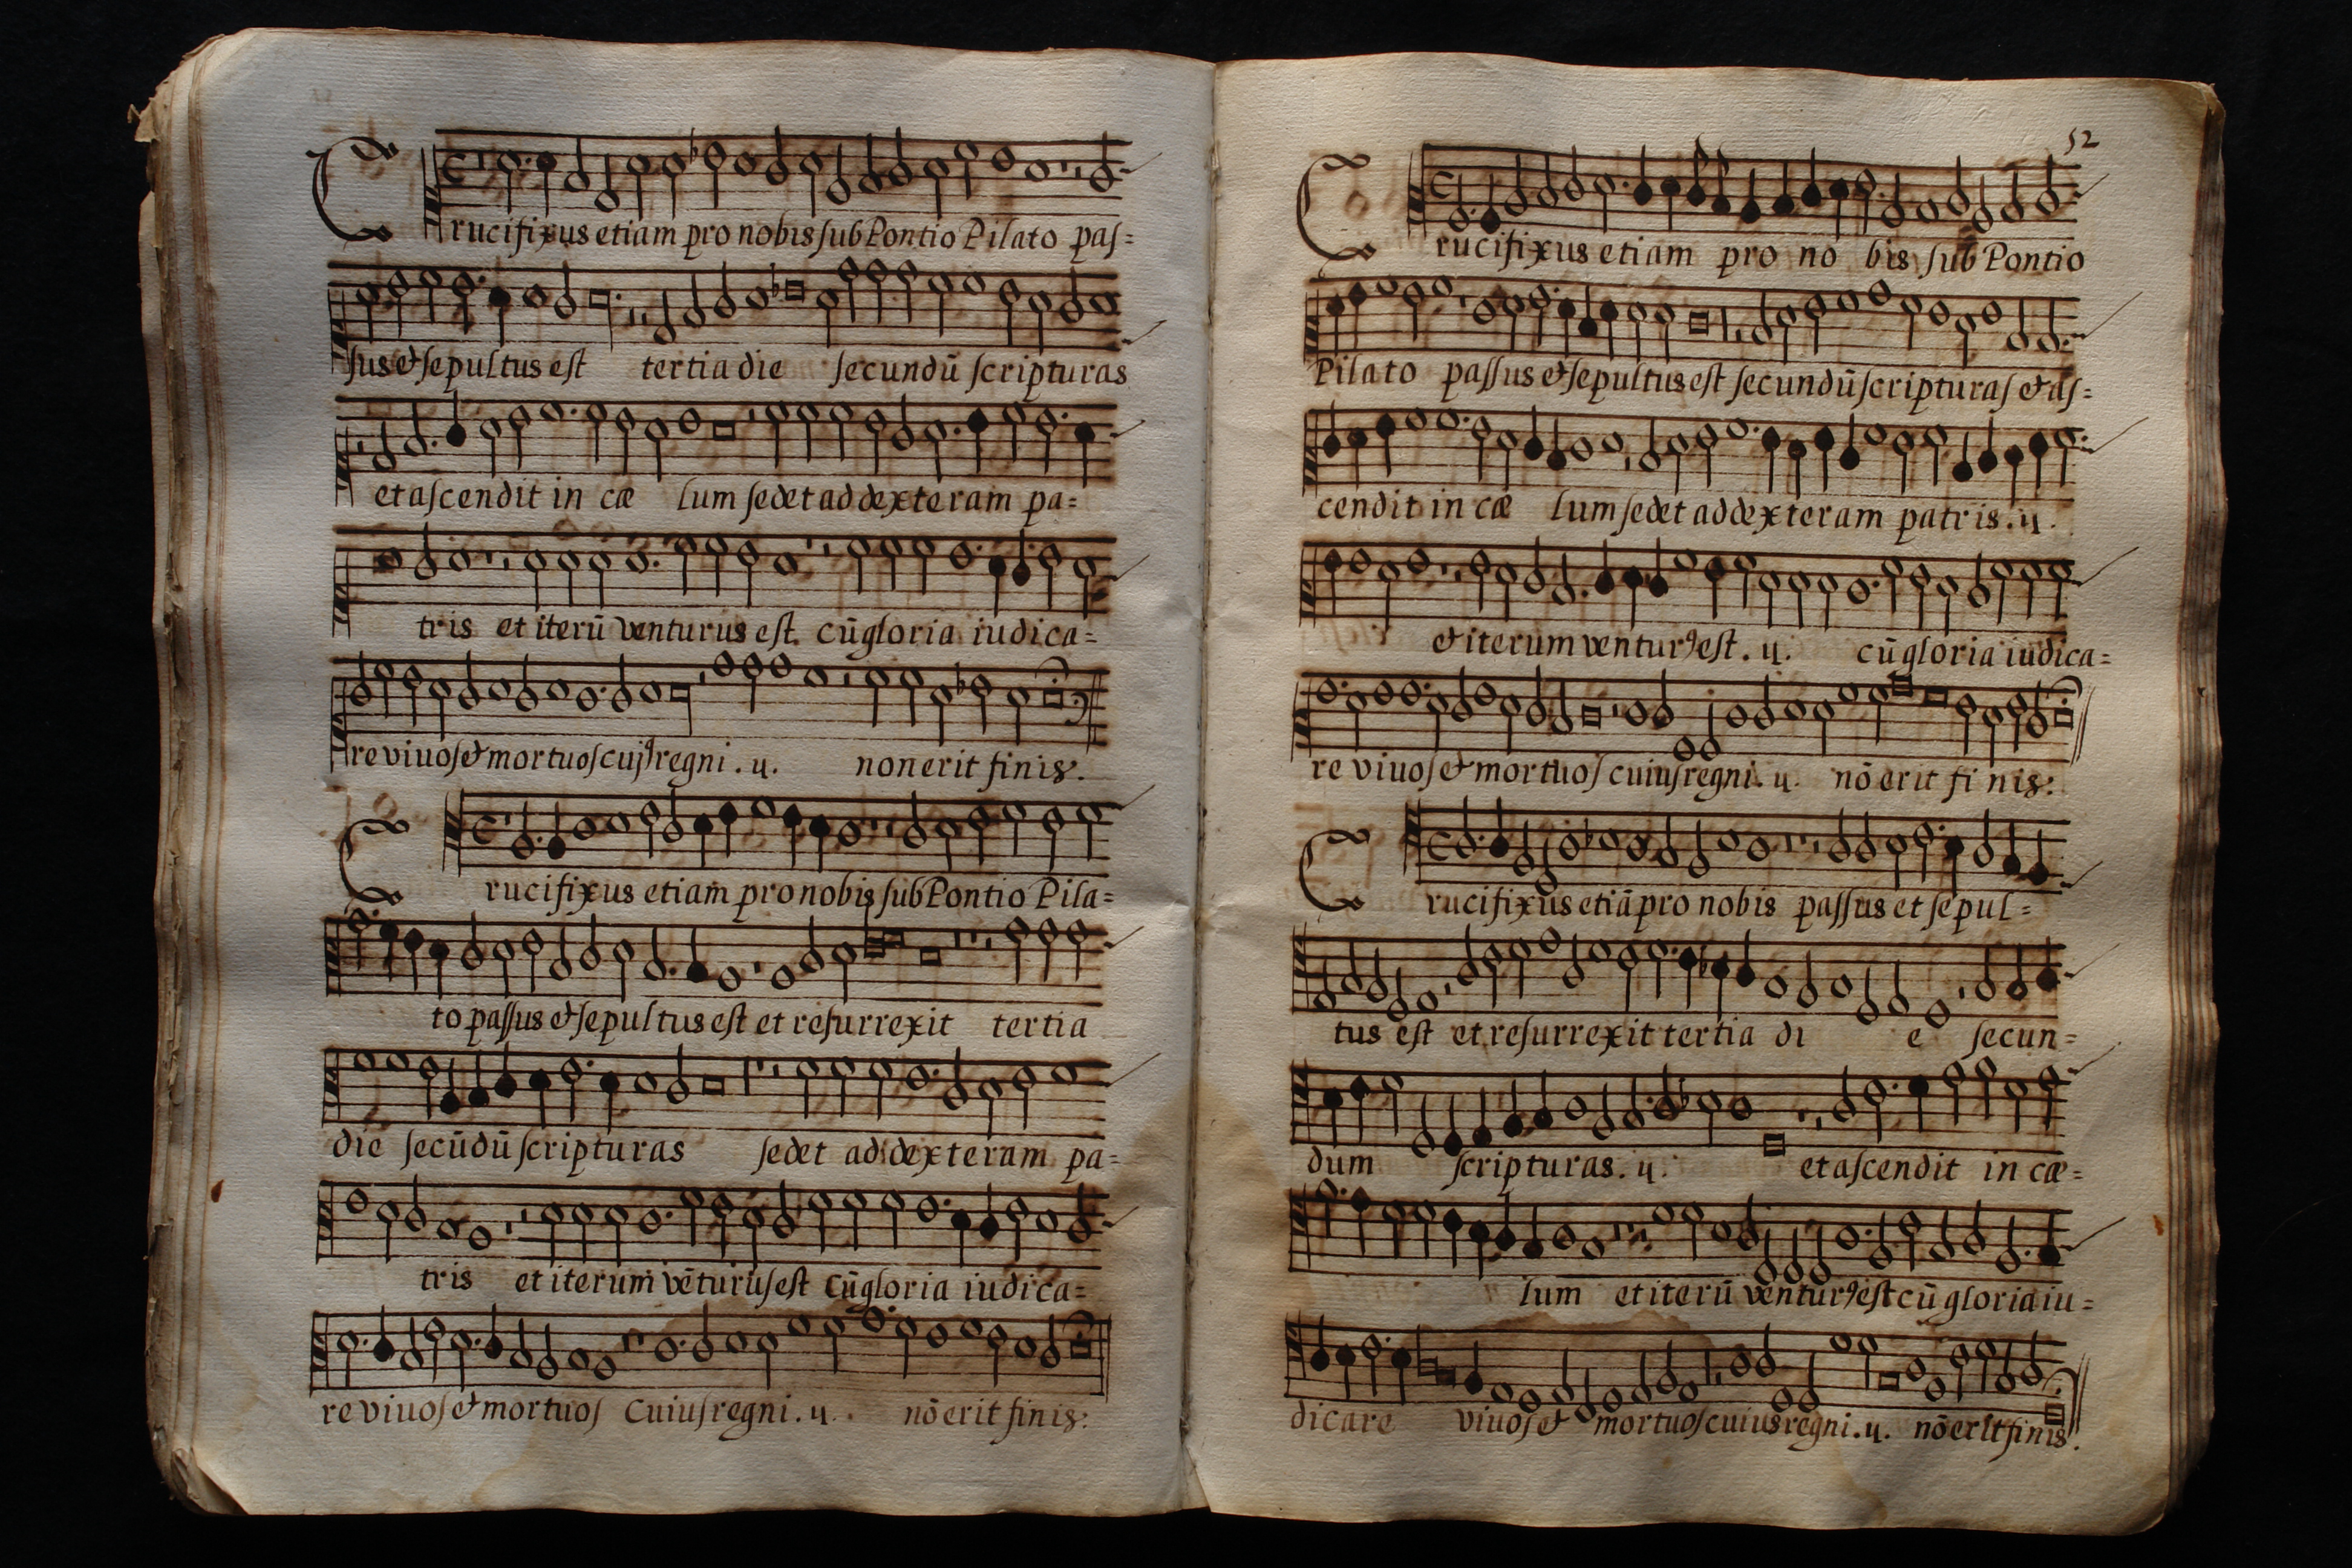 Crucifixus etiam pro nobis sub Pontio Pilato pas=
sus & sepultus est tertia die secundū scripturas
et ascendit in cæ lum sedet ad dexteram pa=
tris et iterū venturus est. cū gloria iudica=
re viuos & mortuos cujꝰ regni . ij. non erit finis.
Crucifixus etiam pro nobis sub Pontio Pila=
to passus & sepultus est et resurrexit tertia
die secūdū scripturas sedet ad dexteram pa=
tris et iterum vēturus est cū gloria iudica=
re viuos & mortuos Cuius regni . ij. . nō erit finis:
52
Crucifixus etiam pro no bis sub Pontio
Pilato passus & sepultus est secundū scripturas & as=
cendit in cæ lum sedet ad dexteram patris . ij .
& iterum venturꝰ est . ij. cū gloria iudica=
re viuos & mortuos cuius regni . ij. nō erit fi nis:
Crucifixus etiā pro nobis passus et sepul=
tus est et resurrexit tertia di e secun=
dum scripturas . ij. et ascendit in cæ=
lum et iterū venturꝰ est cū gloria iu=
dicare viuos & mortuos cuius regni . ij. nō erit finis.